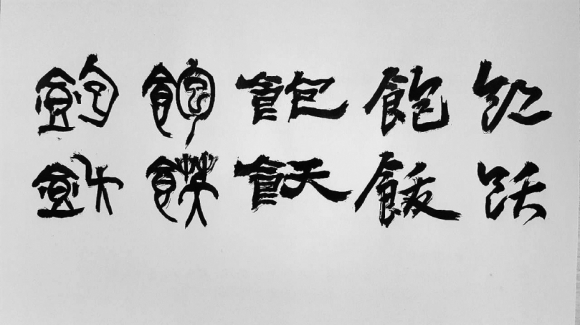 飽 飽 飽 飽 飽
飫 飫 飫 飫 飫